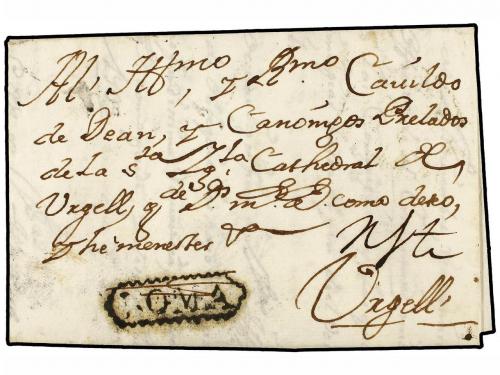 Al Ill^mo, y R^mo Cavildo
de Dean, y Canonigos Prelados
de la S^ta Ygl^a Cathedral de
Urgell, q de D^s m.^s a.^s como deseo,
y he menester
Urgell
ROMA